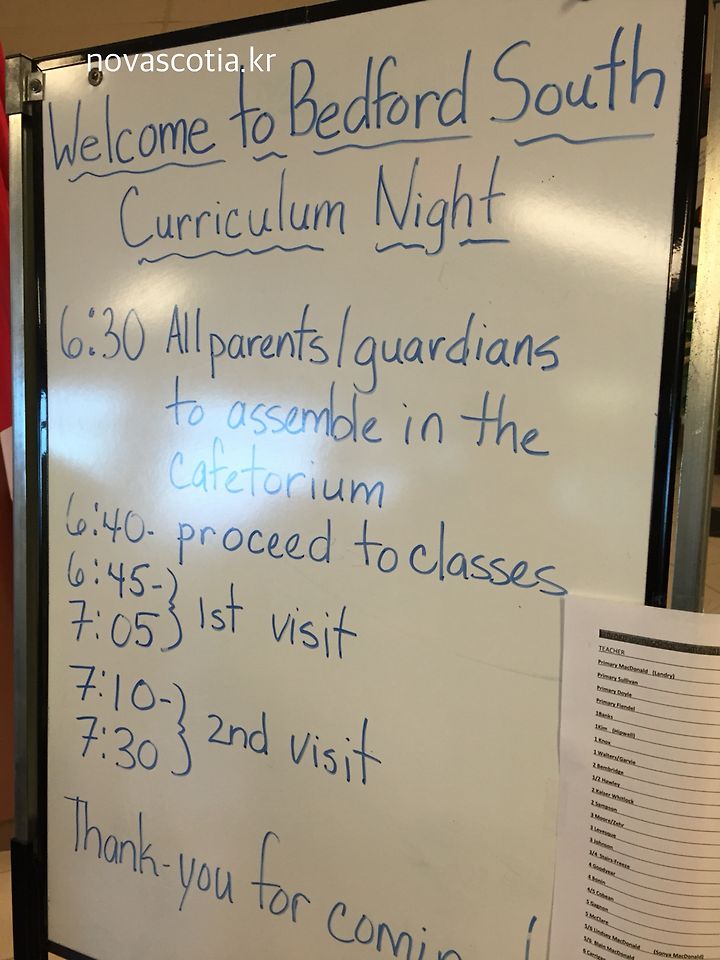 novascotia.kr
Welcome to Bedford South
Curriculum Night
6:30 All parents/guardians
to assemble in the
cafetorium
6:40- proceed to classes
6:45-
7:05 } 1st visit
7:10-
7:30 } 2nd visit
Thank-you for comin
TEACHER
Primary MacDonald (Landry)
Primary Sullivan
Primary Doyle
Primary Fiendel
1Banks
1Kim (Hipwell)
1 Knox
1 Walters/Garvie
2 Bembridge
1/2 Hawley
2 Kaiser Whitlock
2 Sampson
3 Moore/Zehr
3 Levesque
3 Johnson
3/4 Stairs-Freeze
4 Goodyear
4 Bonin
4/5 Cobean
5 Gagnon
5 McClare
5/6 Lindsay MacDonald (Sonya MacDonald)
5/6 Blain MacDonald